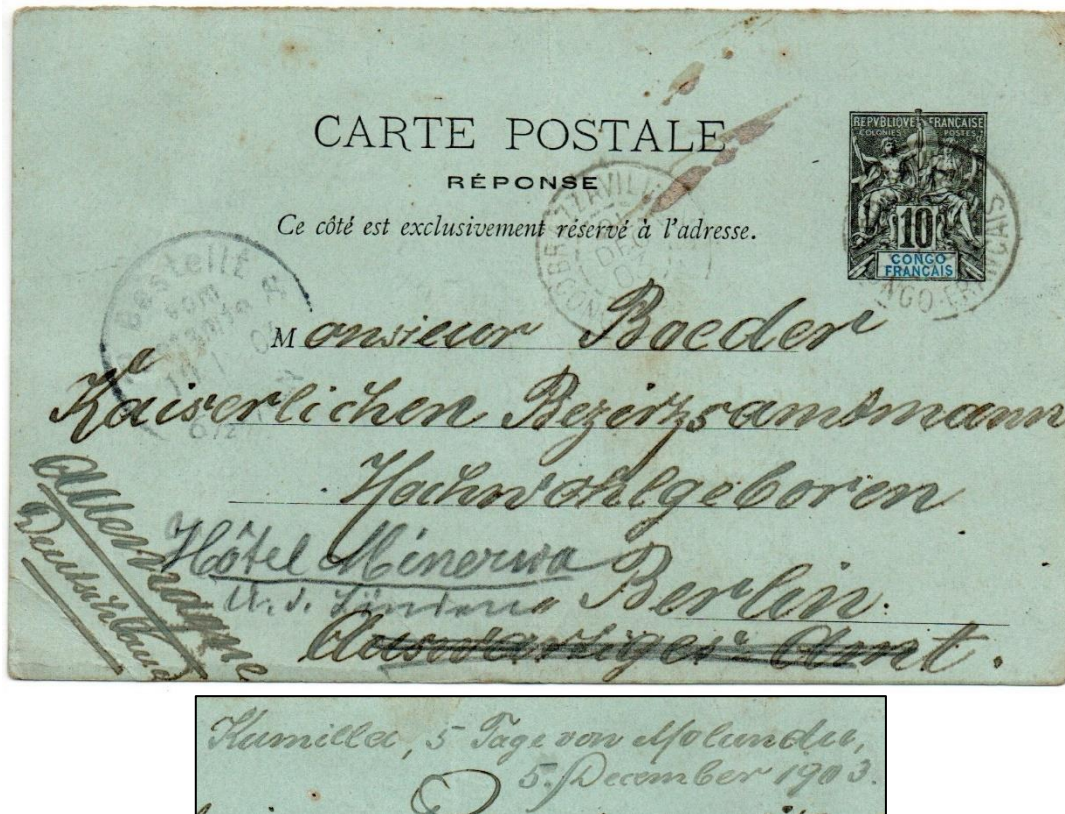 CARTE POSTALE
RÉPONSE
Ce côté est exclusivement réservé à l'adresse.
REPVBLIQVE FRANÇAISE
COLONIES POSTES
10
CONGO
FRANÇAIS
BRAZZAVILLE
DEC
Bestellt
vom
Monsieur Boeder
Kaiserlichen Bezirzsamtmann
Hochwohlgeboren
Hôtel Minerva
U. d. Linden
Berlin.
Auswärtiges Amt.
Allemagne
Deutschland
Kumilla, 5 Tage von Molundu,
5. December 1903.